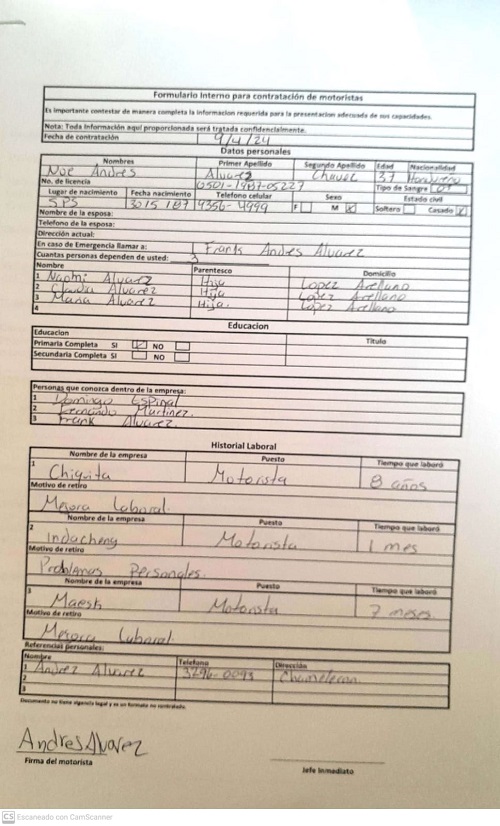 Formulario Interno para contratación de motoristas
Es importante contestar de manera completa la informacion requerida para la presentacion adecuada de sus capacidades.
Nota: Toda información aquí proporcionada será tratada confidencialmente.
Fecha de contratación 9/4/24
Datos personales
Nombres Primer Apellido Segundo Apellido Edad Nacionalidad
Noe Andres Alvarez Chavez 37 Hondureño
No. de licencia 0501-1987-05227 Tipo de Sangre
Lugar de nacimiento Fecha nacimiento Telefono celular Sexo Estado civil
SPS 9356-4999 F M Soltero Casado
Nombre de la esposa:
Telefono de la esposa:
Dirección actual:
En caso de Emergencia llamar a: Frank Andres Alvarez
Cuantas personas dependen de usted: 3
Nombre Parentesco Domicilio
1 Naomi Alvarez Hija Lopez Arellano
2 Claudia Alvarez Hija Lopez Arellano
3 Maria Alvarez Hija. Lopez Arellano
4
Educacion
Educacion Titulo
Primaria Completa SI NO
Secundaria Completa SI NO
Personas que conozca dentro de la empresa:
1 Domingo Espinal
2 Fernando Martinez.
3 Frank Alvarez.
Historial Laboral
Nombre de la empresa Puesto Tiempo que laboró
1 Chiquita Motorista 8 años
Motivo de retiro
Mejora Laboral.
Nombre de la empresa Puesto Tiempo que laboró
2 Indacheng Motorista 1 mes
Motivo de retiro
Problemas Personales.
Nombre de la empresa Puesto Tiempo que laboró
3 Maesh Motorista 7 meses.
Motivo de retiro
Mejora Laboral.
Referencias personales:
Nombre Telefono Dirección
1 Andrez Alvarez 3296-0093 Chamelecon.
2
3
Documento no tiene vigencia legal y es un formato no controlado.
Andres Alvarez
Firma del motorista
Jefe Inmediato
CS Escaneado con CamScanner